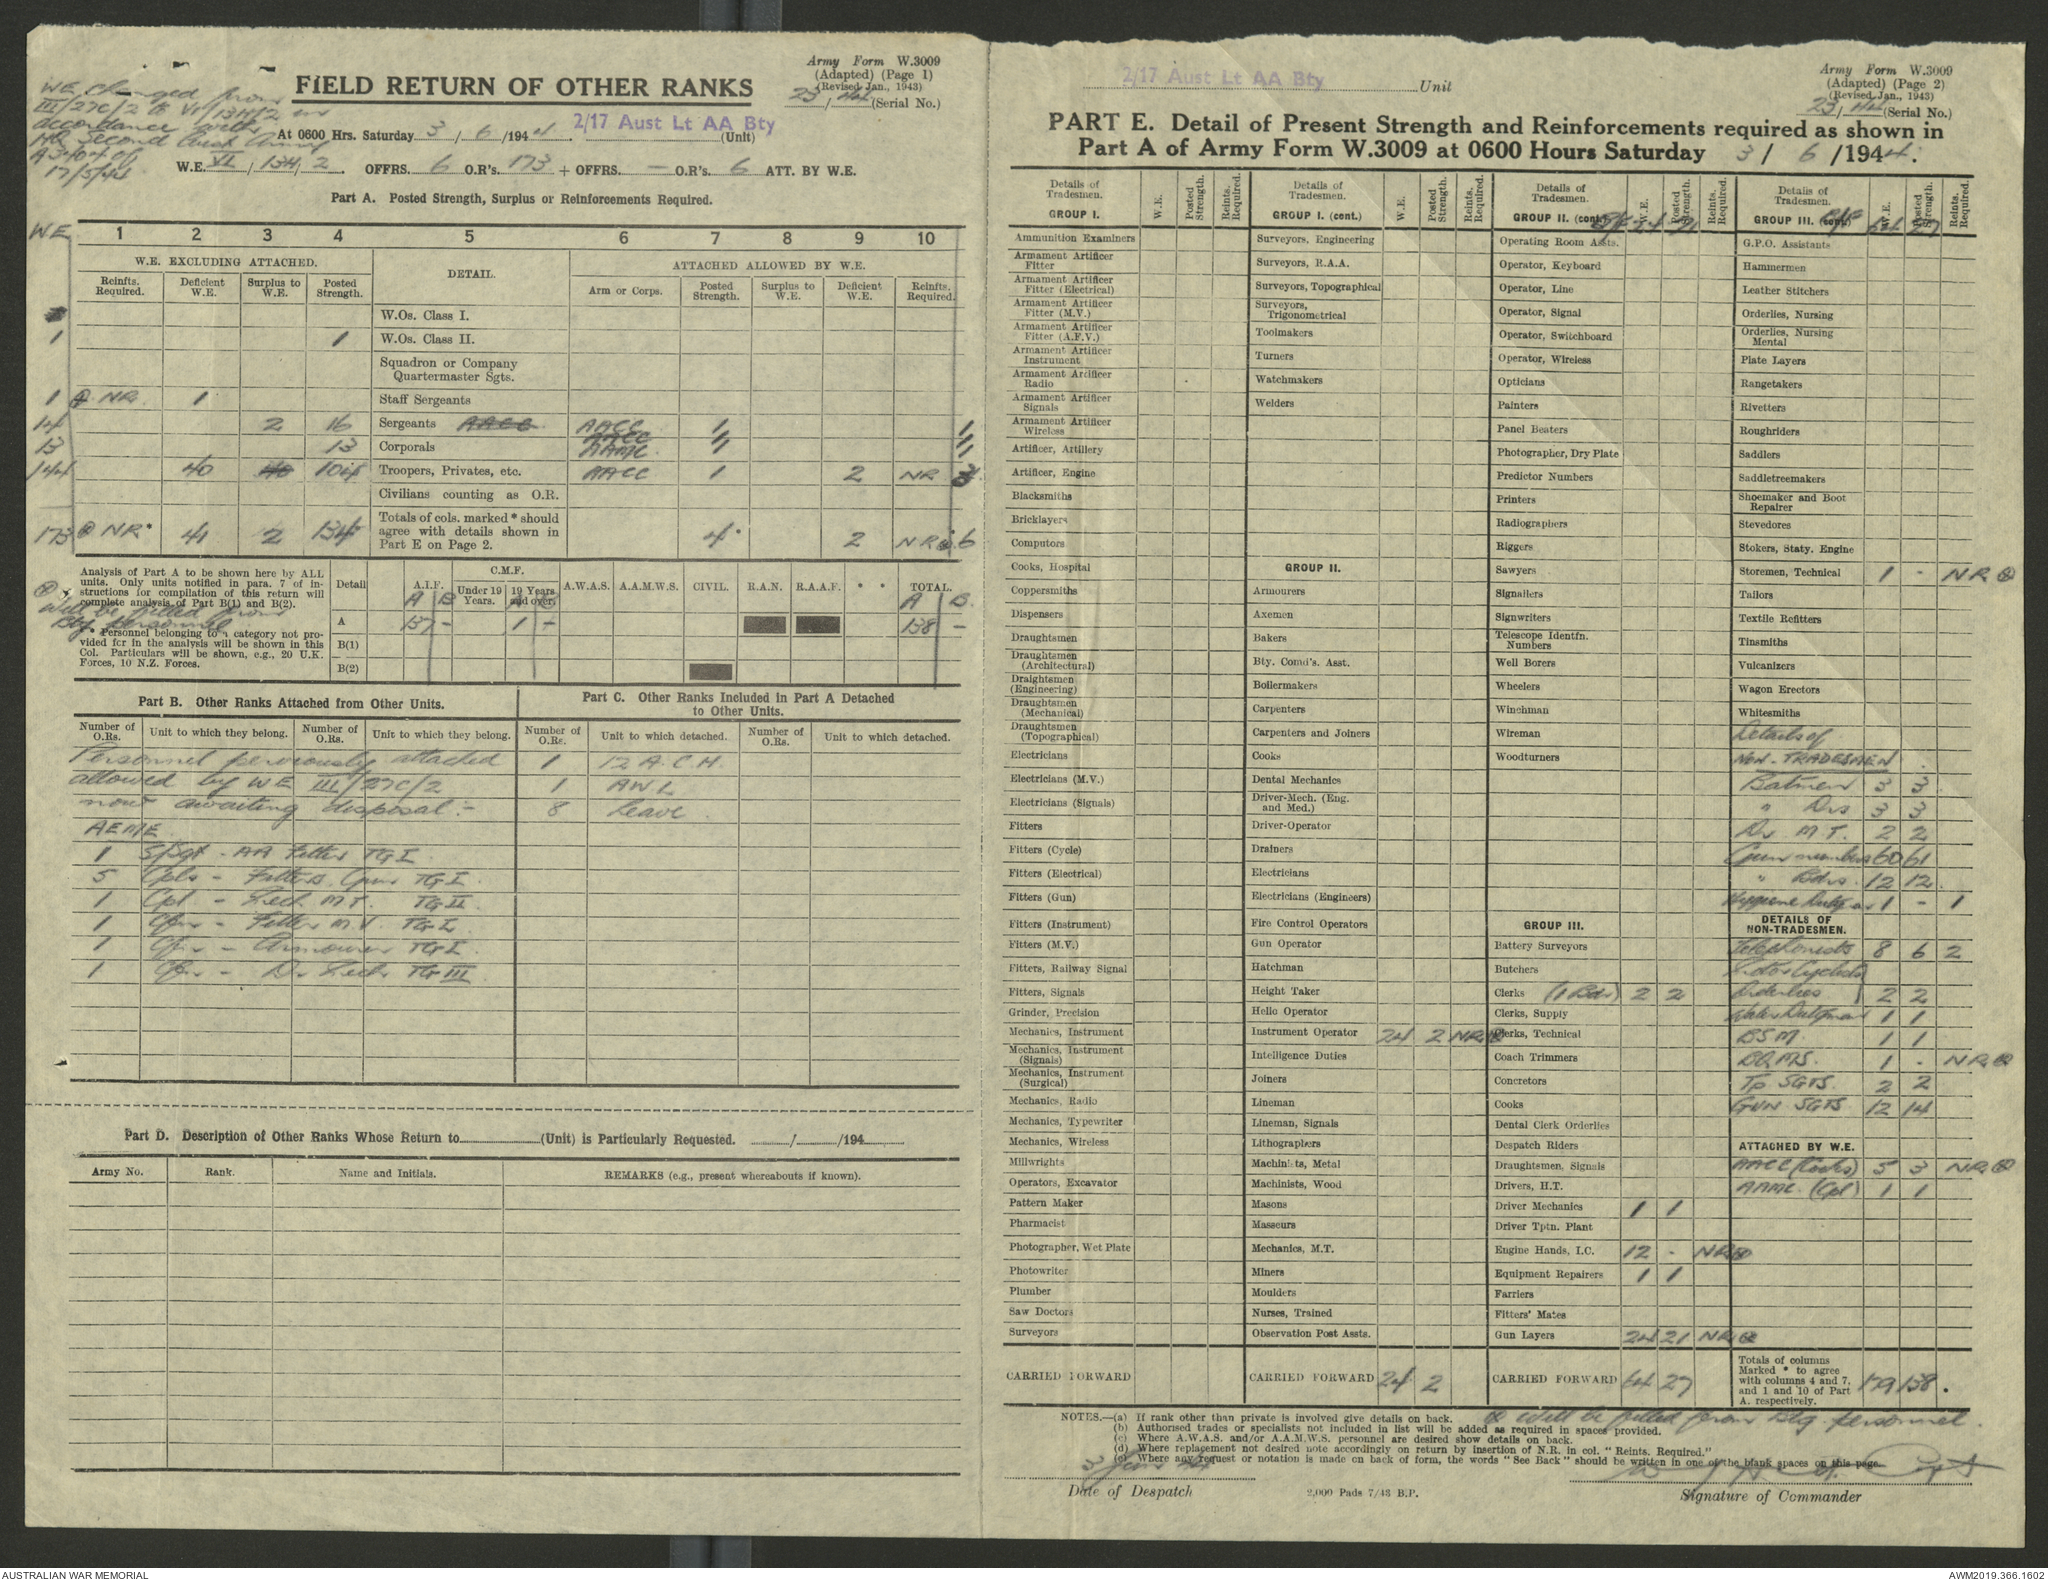 Army Form W.3009
(Adapted) (Page 1)
(Revised Jan., 1943)
23/44 (Serial No.)
WE changed from
III/27C/2 to VI/13H/2 in
accordance with
HQ Second Aust Army
A3404 of
17/5/44
FIELD RETURN OF OTHER RANKS
At 0600 Hrs. Saturday 3/6/1944. 2/17 Aust Lt AA Bty (Unit)
W.E. VI/13H/2. OFFRS. 6 O.R's. 173 + OFFRS. — O.R's. 6 ATT. BY W.E.
Part A. Posted Strength, Surplus or Reinforcements Required.
WE 1 2 3 4 5 6 7 8 9 10
W.E. EXCLUDING ATTACHED. DETAIL. ATTACHED ALLOWED BY W.E.
Reinfts. Required. Deficient W.E. Surplus to W.E. Posted Strength. Arm or Corps. Posted Strength. Surplus to W.E. Deficient W.E. Reinfts. Required.
W.Os. Class I.
1 1 W.Os. Class II.
Squadron or Company
Quartermaster Sgts.
1 ⊕ NR 1 Staff Sergeants
14 2 16 Sergeants AACC AACC 1 1
13 13 Corporals AACC 1 1
AAMC 1 1
144 40 40 104 Troopers, Privates, etc. AACC 1 2 NR 3
Civilians counting as O.R.
173 ⊕ NR* 41 2 134 Totals of cols. marked * should
agree with details shown in
Part E on Page 2. 4* 2 NR⊕ 6
Analysis of Part A to be shown here by ALL
units. Only units notified in para. 7 of in-
structions for compilation of this return will
complete analysis of Part B(1) and B(2).
⊕ Will be filled from
Bty personnel
*. Personnel belonging to a category not pro-
vided for in the analysis will be shown in this
Col. Particulars will be shown, e.g., 20 U.K.
Forces, 10 N.Z. Forces.
Detail A.I.F. C.M.F. Under 19 Years. 19 Years and over. A.W.A.S. A.A.M.W.S. CIVIL. R.A.N. R.A.A.F. * * TOTAL.
A B A B
A 137 - 1 - 138 -
B(1)
B(2)
Part B. Other Ranks Attached from Other Units.
Part C. Other Ranks Included in Part A Detached
to Other Units.
Number of O.Rs. Unit to which they belong. Number of O.Rs. Unit to which they belong. Number of O.Rs. Unit to which detached. Number of O.Rs. Unit to which detached.
Personnel perviously attached 1 12 A.C.H.
allowed by WE III/27C/2 1 AWL
now awaiting disposal:- 8 Leave
AEME
1 S/Sgt - AA Fitter TG I
5 Cpls - Fitters Gun TG I
1 Cpl - Mech MT. TG II
1 Cfn - Fitter M.V. TG I
1 Cfn - Armourer TG I
1 Cfn - Dr Mech TG III
Part D. Description of Other Ranks Whose Return to (Unit) is Particularly Requested. / /194
Army No. Rank. Name and Initials. REMARKS (e.g., present whereabouts if known).
2/17 Aust Lt AA Bty Unit
Army Form W.3009
(Adapted) (Page 2)
(Revised Jan., 1943)
23/44 (Serial No.)
PART E. Detail of Present Strength and Reinforcements required as shown in
Part A of Army Form W.3009 at 0600 Hours Saturday 3/6/1944.
Details of Tradesmen. W.E. Posted Strength. Reints. Required.
GROUP I.
Ammunition Examiners
Armament Artificer
Fitter
Armament Artificer
Fitter (Electrical)
Armament Artificer
Fitter (M.V.)
Armament Artificer
Fitter (A.F.V.)
Armament Artificer
Instrument
Armament Artificer
Radio
Armament Artificer
Signals
Armament Artificer
Wireless
Artificer, Artillery
Artificer, Engine
Blacksmiths
Bricklayers
Computors
Cooks, Hospital
Coppersmiths
Dispensers
Draughtsmen
Draughtsmen
(Architectural)
Draughtsmen
(Engineering)
Draughtsmen
(Mechanical)
Draughtsmen
(Topographical)
Electricians
Electricians (M.V.)
Electricians (Signals)
Fitters
Fitters (Cycle)
Fitters (Electrical)
Fitters (Gun)
Fitters (Instrument)
Fitters (M.V.)
Fitters, Railway Signal
Fitters, Signals
Grinder, Precision
Mechanics, Instrument
Mechanics, Instrument
(Signals)
Mechanics, Instrument
(Surgical)
Mechanics, Radio
Mechanics, Typewriter
Mechanics, Wireless
Millwrights
Operators, Excavator
Pattern Maker
Pharmacist
Photographer, Wet Plate
Photowriter
Plumber
Saw Doctors
Surveyors
CARRIED FORWARD
Details of Tradesmen. W.E. Posted Strength. Reints. Required.
GROUP I. (cont.)
Surveyors, Engineering
Surveyors, R.A.A.
Surveyors, Topographical
Surveyors,
Trigonometrical
Toolmakers
Turners
Watchmakers
Welders
GROUP II.
Armourers
Axemen
Bakers
Bty. Comd's. Asst.
Boilermakers
Carpenters
Carpenters and Joiners
Cooks
Dental Mechanics
Driver-Mech. (Eng.
and Med.)
Driver-Operator
Drainers
Electricians
Electricians (Engineers)
Fire Control Operators
Gun Operator
Hatchman
Height Taker
Helio Operator
Instrument Operator 24 2 NR⊕
Intelligence Duties
Joiners
Lineman
Lineman, Signals
Lithographers
Machinists, Metal
Machinists, Wood
Masons
Masseurs
Mechanics, M.T.
Miners
Moulders
Nurses, Trained
Observation Post Assts.
CARRIED FORWARD 24 2
Details of Tradesmen. W.E. Posted Strength. Reints. Required.
GROUP II. (cont.)
Operating Room Assts.
Operator, Keyboard
Operator, Line
Operator, Signal
Operator, Switchboard
Operator, Wireless
Opticians
Painters
Panel Beaters
Photographer, Dry Plate
Predictor Numbers
Printers
Radiographers
Riggers
Sawyers
Signallers
Signwriters
Telescope Identfn.
Numbers
Well Borers
Wheelers
Winchman
Wireman
Woodturners
GROUP III.
Battery Surveyors
Butchers
Clerks (1 Bdr) 2 2
Clerks, Supply
Clerks, Technical
Coach Trimmers
Concretors
Cooks
Dental Clerk Orderlies
Despatch Riders
Draughtsmen, Signals
Drivers, H.T.
Driver Mechanics 1 1
Driver Tptn. Plant
Engine Hands, I.C. 12 - NR⊕
Equipment Repairers 1 1
Farriers
Fitters' Mates
Gun Layers 24 21 NR⊕
CARRIED FORWARD 64 27
Details of Tradesmen. W.E. Posted Strength. Reints. Required.
GROUP III. (cont.) C/F 64 27
G.P.O. Assistants
Hammermen
Leather Stitchers
Orderlies, Nursing
Orderlies, Nursing
Mental
Plate Layers
Rangetakers
Rivetters
Roughriders
Saddlers
Saddletreemakers
Shoemaker and Boot
Repairer
Stevedores
Stokers, Staty. Engine
Storemen, Technical 1 - NR⊕
Tailors
Textile Refitters
Tinsmiths
Vulcanizers
Wagon Erectors
Whitesmiths
Details of
NON-TRADESMEN
Batmen 3 3
" Drs 3 3
Dr M.T. 2 2
Gun numbers 60 61
" Bdrs. 12 12
Hygiene Duties 1 - 1
DETAILS OF
NON-TRADESMEN.
Telephonists 8 6 2
Motor Cyclists
Orderlies 2 2
Water Dutyman 1 1
BSM. 1 1
BQMS. 1 - NR⊕
Tp SGTS. 2 2
GUN SGTS. 12 14
ATTACHED BY W.E.
AACC (Cooks) 5 3 NR⊕
AAMC. (Cpl) 1 1
Totals of columns
Marked * to agree
with columns 4 and 7,
and 1 and 10 of Part
A. respectively. 179 138.
NOTES.—(a) If rank other than private is involved give details on back.
(b) Authorised trades or specialists not included in list will be added as required in spaces provided.
(c) Where A.W.A.S. and/or A.A.M.W.S. personnel are desired show details on back.
(d) Where replacement not desired note accordingly on return by insertion of N.R. in col. "Reints. Required."
(e) Where any request or notation is made on back of form, the words "See Back" should be written in one of the blank spaces on this page.
⊕ Will be filled from Btg. personnel.
3 Jun 44
Capt
Date of Despatch
2,000 Pads 7/43 B.P.
Signature of Commander
AUSTRALIAN WAR MEMORIAL
AWM2019.366.1602